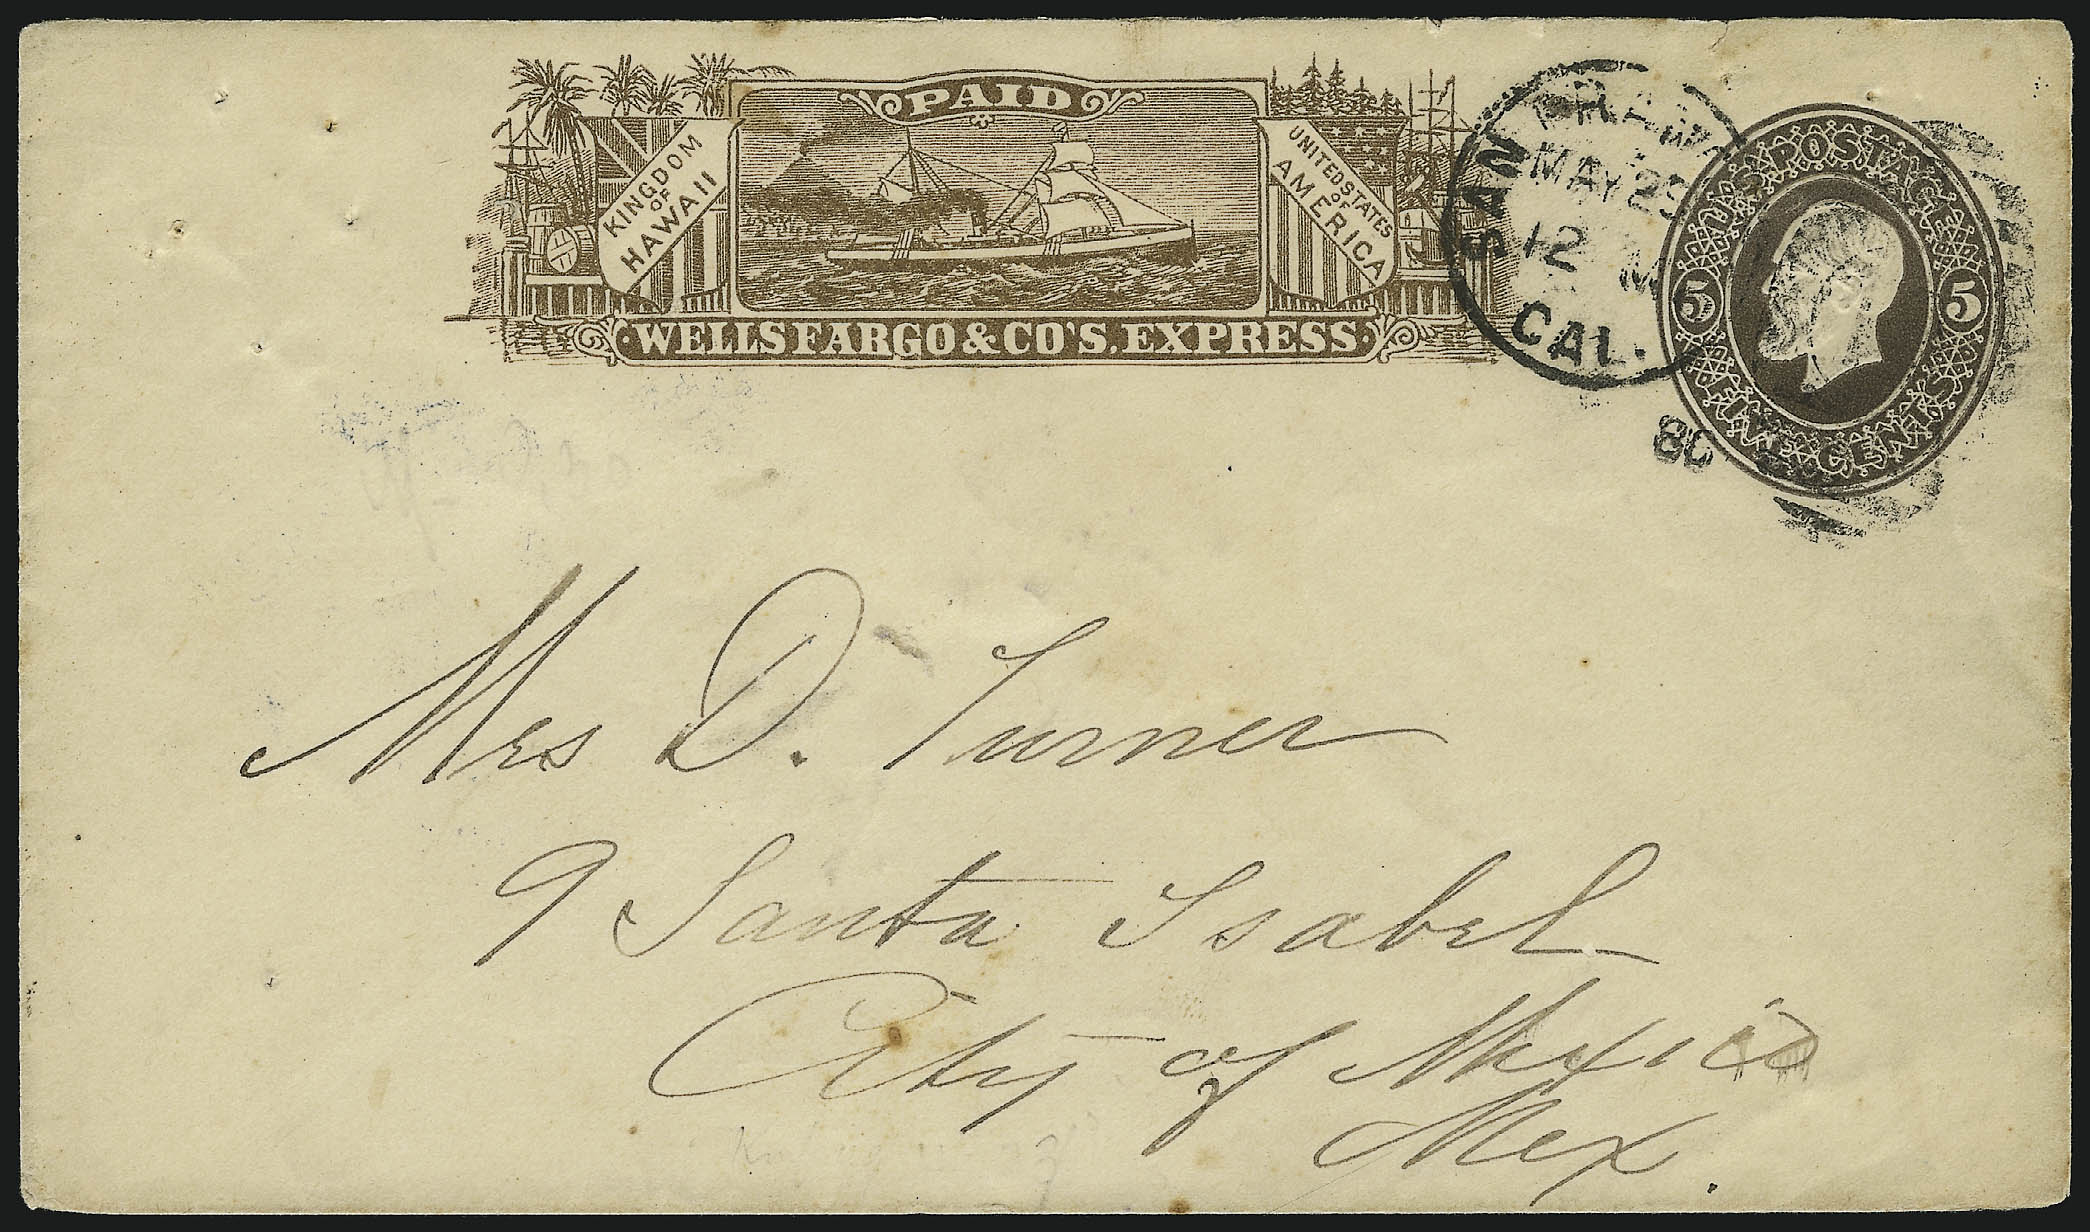 PAID
KINGDOM
OF
HAWAII
UNITED STATES
OF
AMERICA
WELLS FARGO & CO'S. EXPRESS.
SAN FRAN
MAY 29
12 M
CAL.
80
U.S. POSTAGE
5 5
FIVE CENTS
Mrs D. Turner
9 Santa Isabel
City of Mexico
Mex.